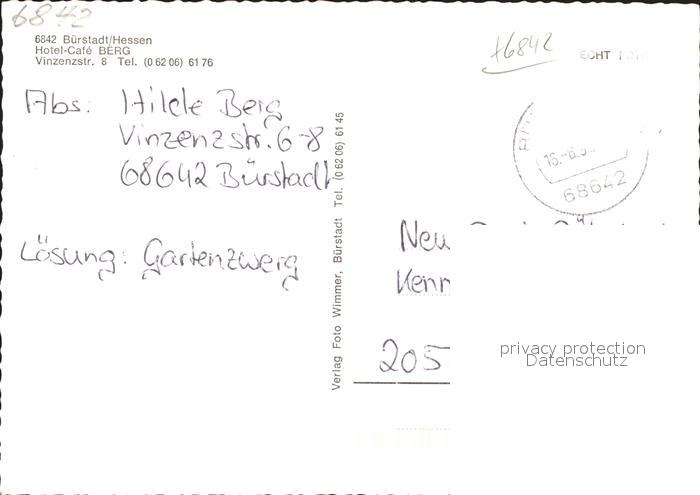 6842
6842 Bürstadt/Hessen
Hotel-Café BERG
Vinzenzstr. 8 Tel. (0 62 06) 61 76
+6842
ECHT
Abs: Hilde Berg
Vinzenzstr. 6-8
68642 Bürstadt
Lösung: Gartenzwerg
Verlag Foto Wimmer, Bürstadt Tel. (0 62 06) 61 45
16.-6.9
68642
Neu
Kenn
205
privacy protection
Datenschutz